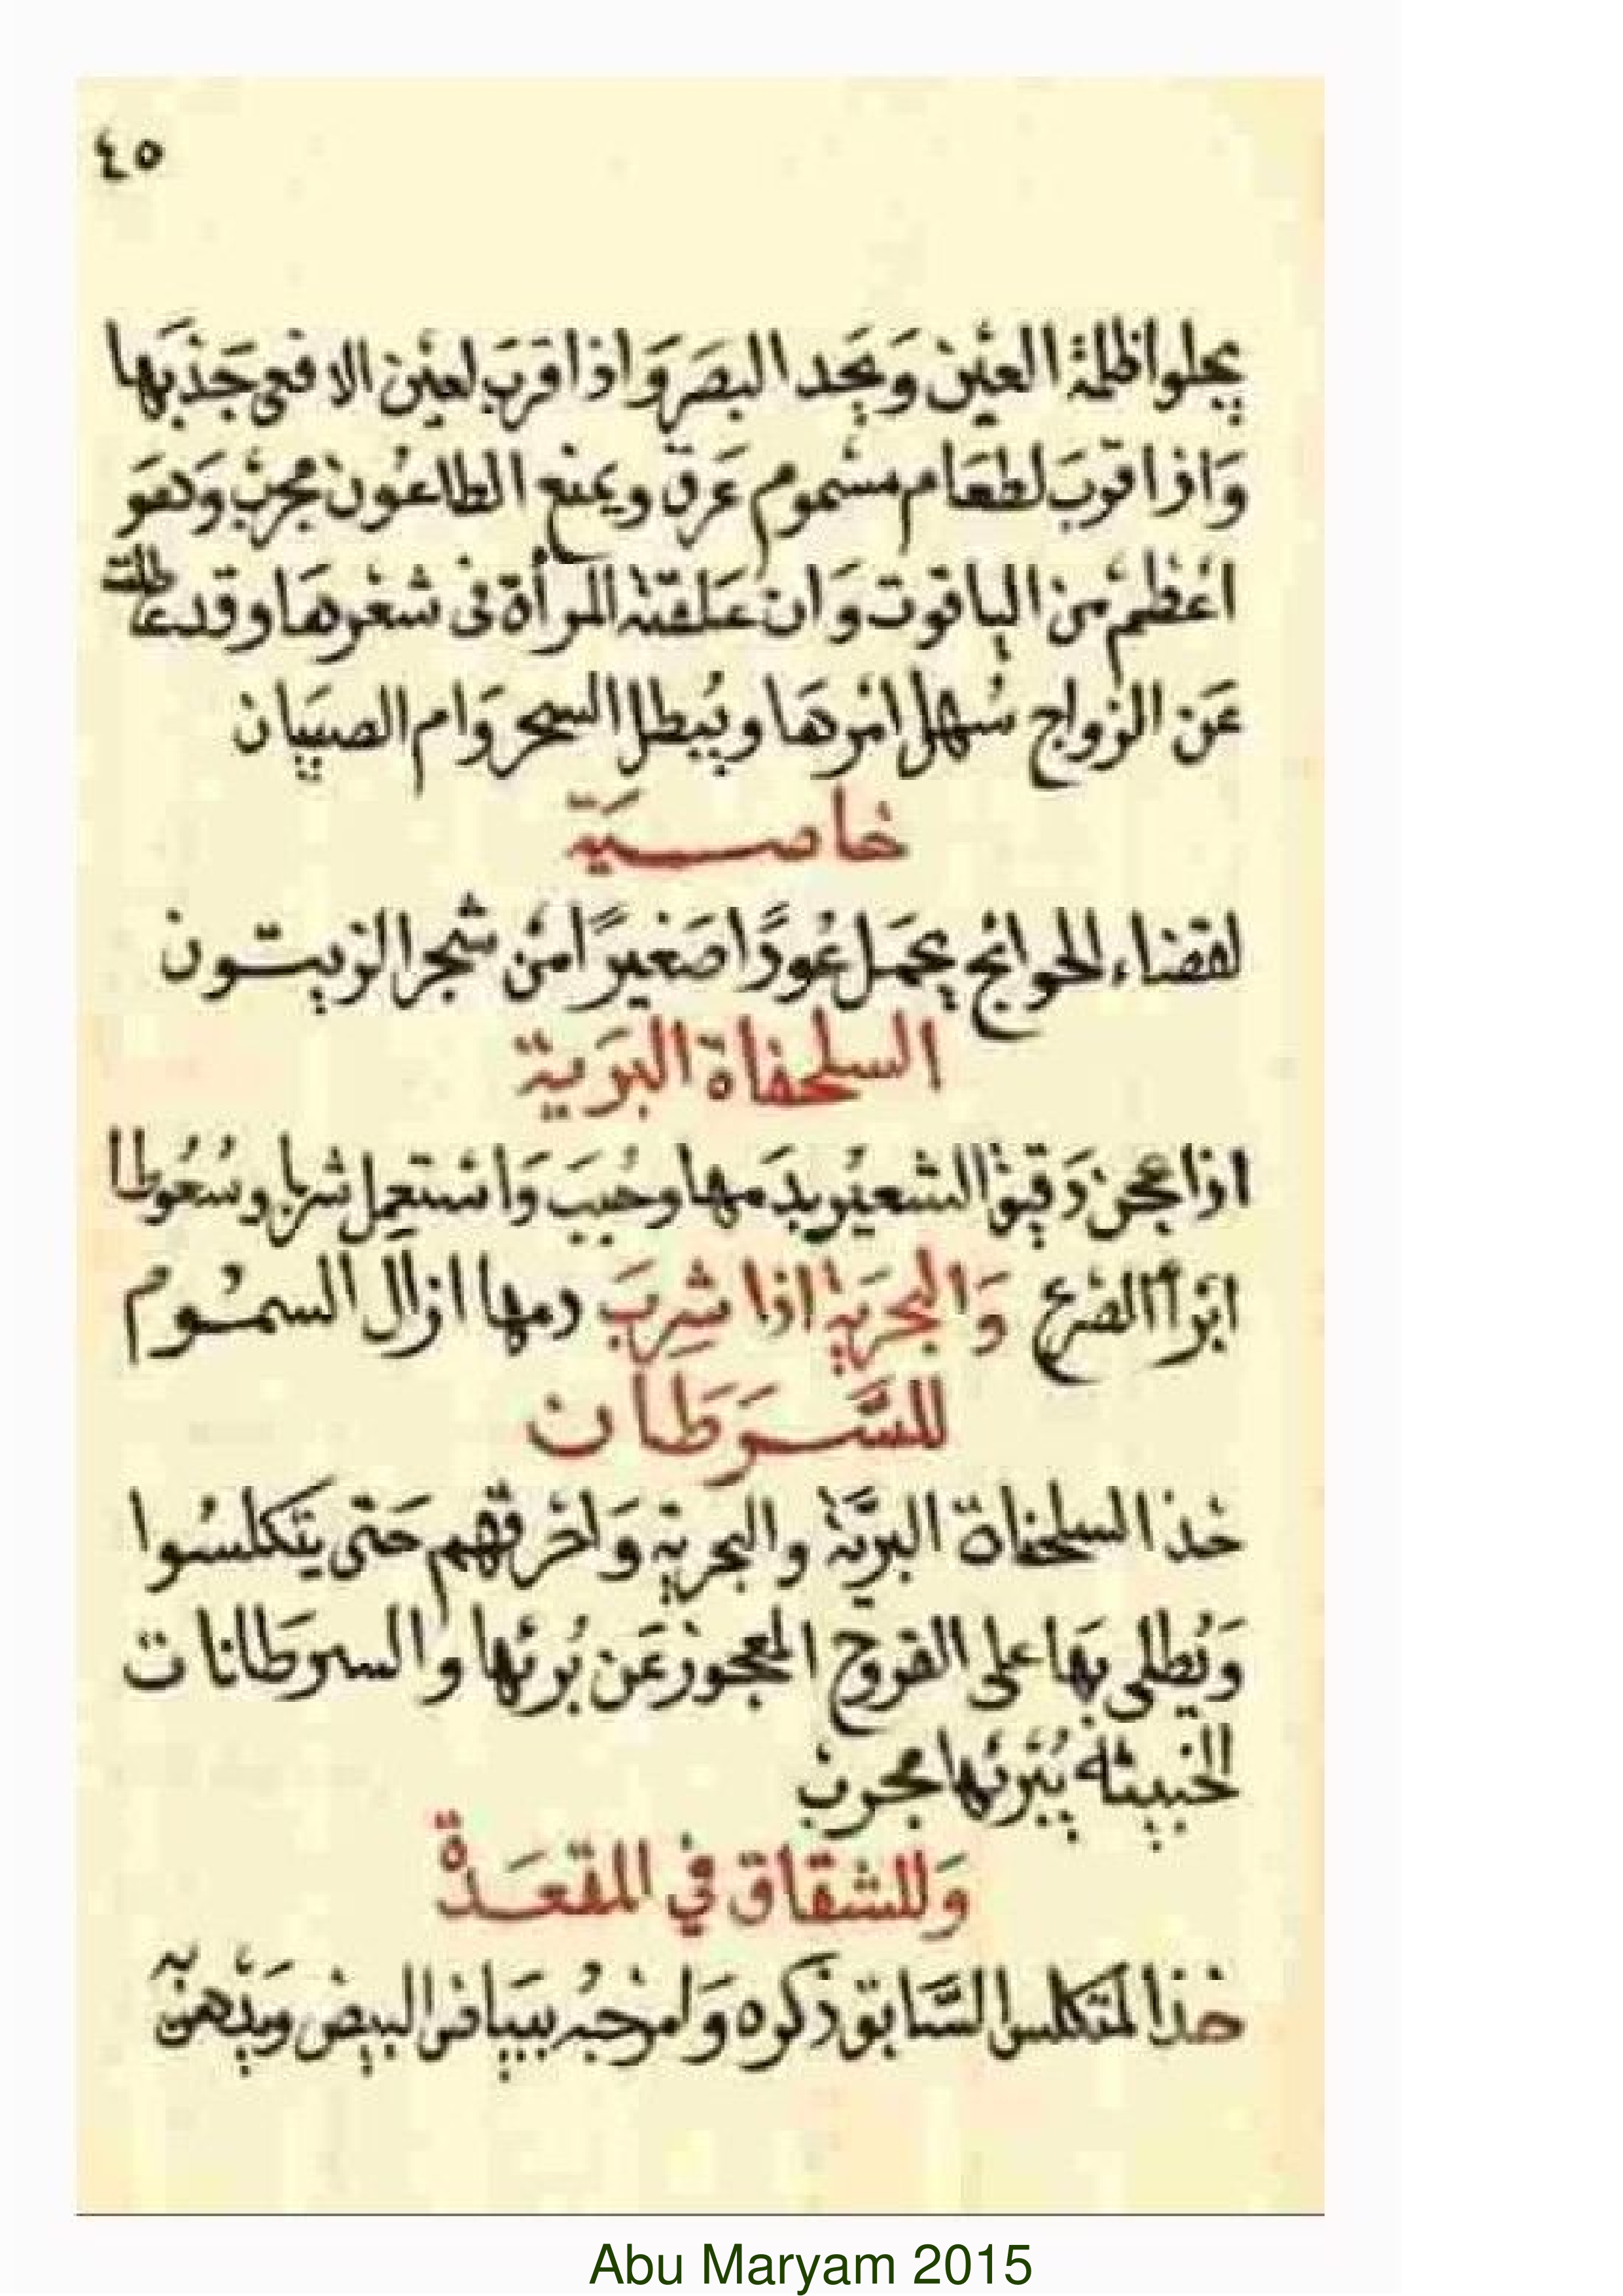 ٤٥
يجلوا ظلمة العَيْن وَيَحِد البصَر وَاذا قرَبَ لعيْن الافعى جَذبَها
وَاذا قربَ لطعَام مسْموم عَرق ويمنع الطاعُون مجرب وَهوَ
اعْظم من الياقوت وَان عَلقته المرأة فى شعْرهَا وقد عطلت
عَن الزواج سُهل امْرهَا ويُبطل السحر وَام الصبيَان
خاصيَة
لقضاء الحوائج يحمَل عُودًا صَغيرًا من شجر الزيتون
السلحفاة البرَية
اذا عجن دَقيق الشعيْر بدَمها وحُببَ وَاستعمل شربا وسُعُوطا
ابْرأ الصَرع وَالبحرَية اذا شرِبَ دمها ازال السمُوم
للسَّرَطان
خذ السلحفاة البرّيَة والبحرية وَاحْرقهم حَتى يتكلسُوا
وَيُطلى بهَا على القروح المعجوز عَن بُرئها والسرطانات
الخبيثة يُبْرئها مجرب
وَللشقاق في المقعَدة
خذ المتكلس السَّابق ذكره وَامزجُه ببيَاض البيض وَيدْهن به
Abu Maryam 2015